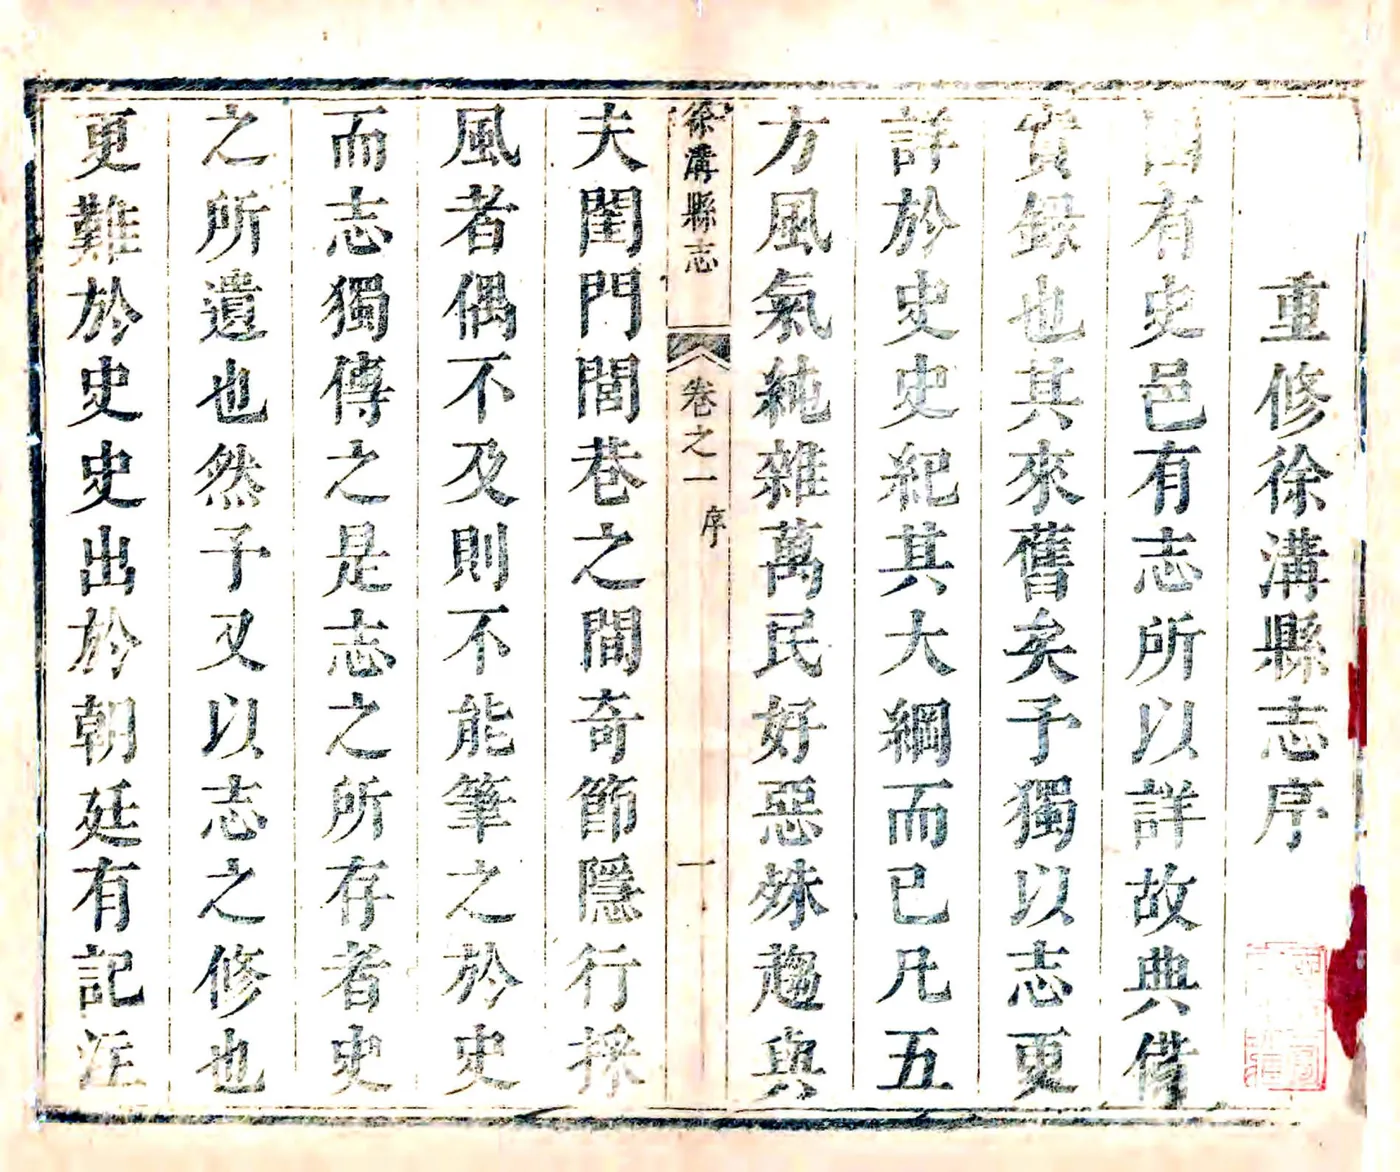 重修徐溝縣志序
國有史邑有志所以詳故典俻
實録也其來舊矣予獨以志更
詳於史史紀其大綱而已凡五
方風氣純雜萬民好惡殊趨與
徐溝縣志 卷之一 序 一
夫閨門閭巷之間奇節隱行採
風者偶不及則不能筆之於史
而志獨傳之是志之所存者史
之所遺也然予又以志之修也
更難於史史出於朝廷有記注